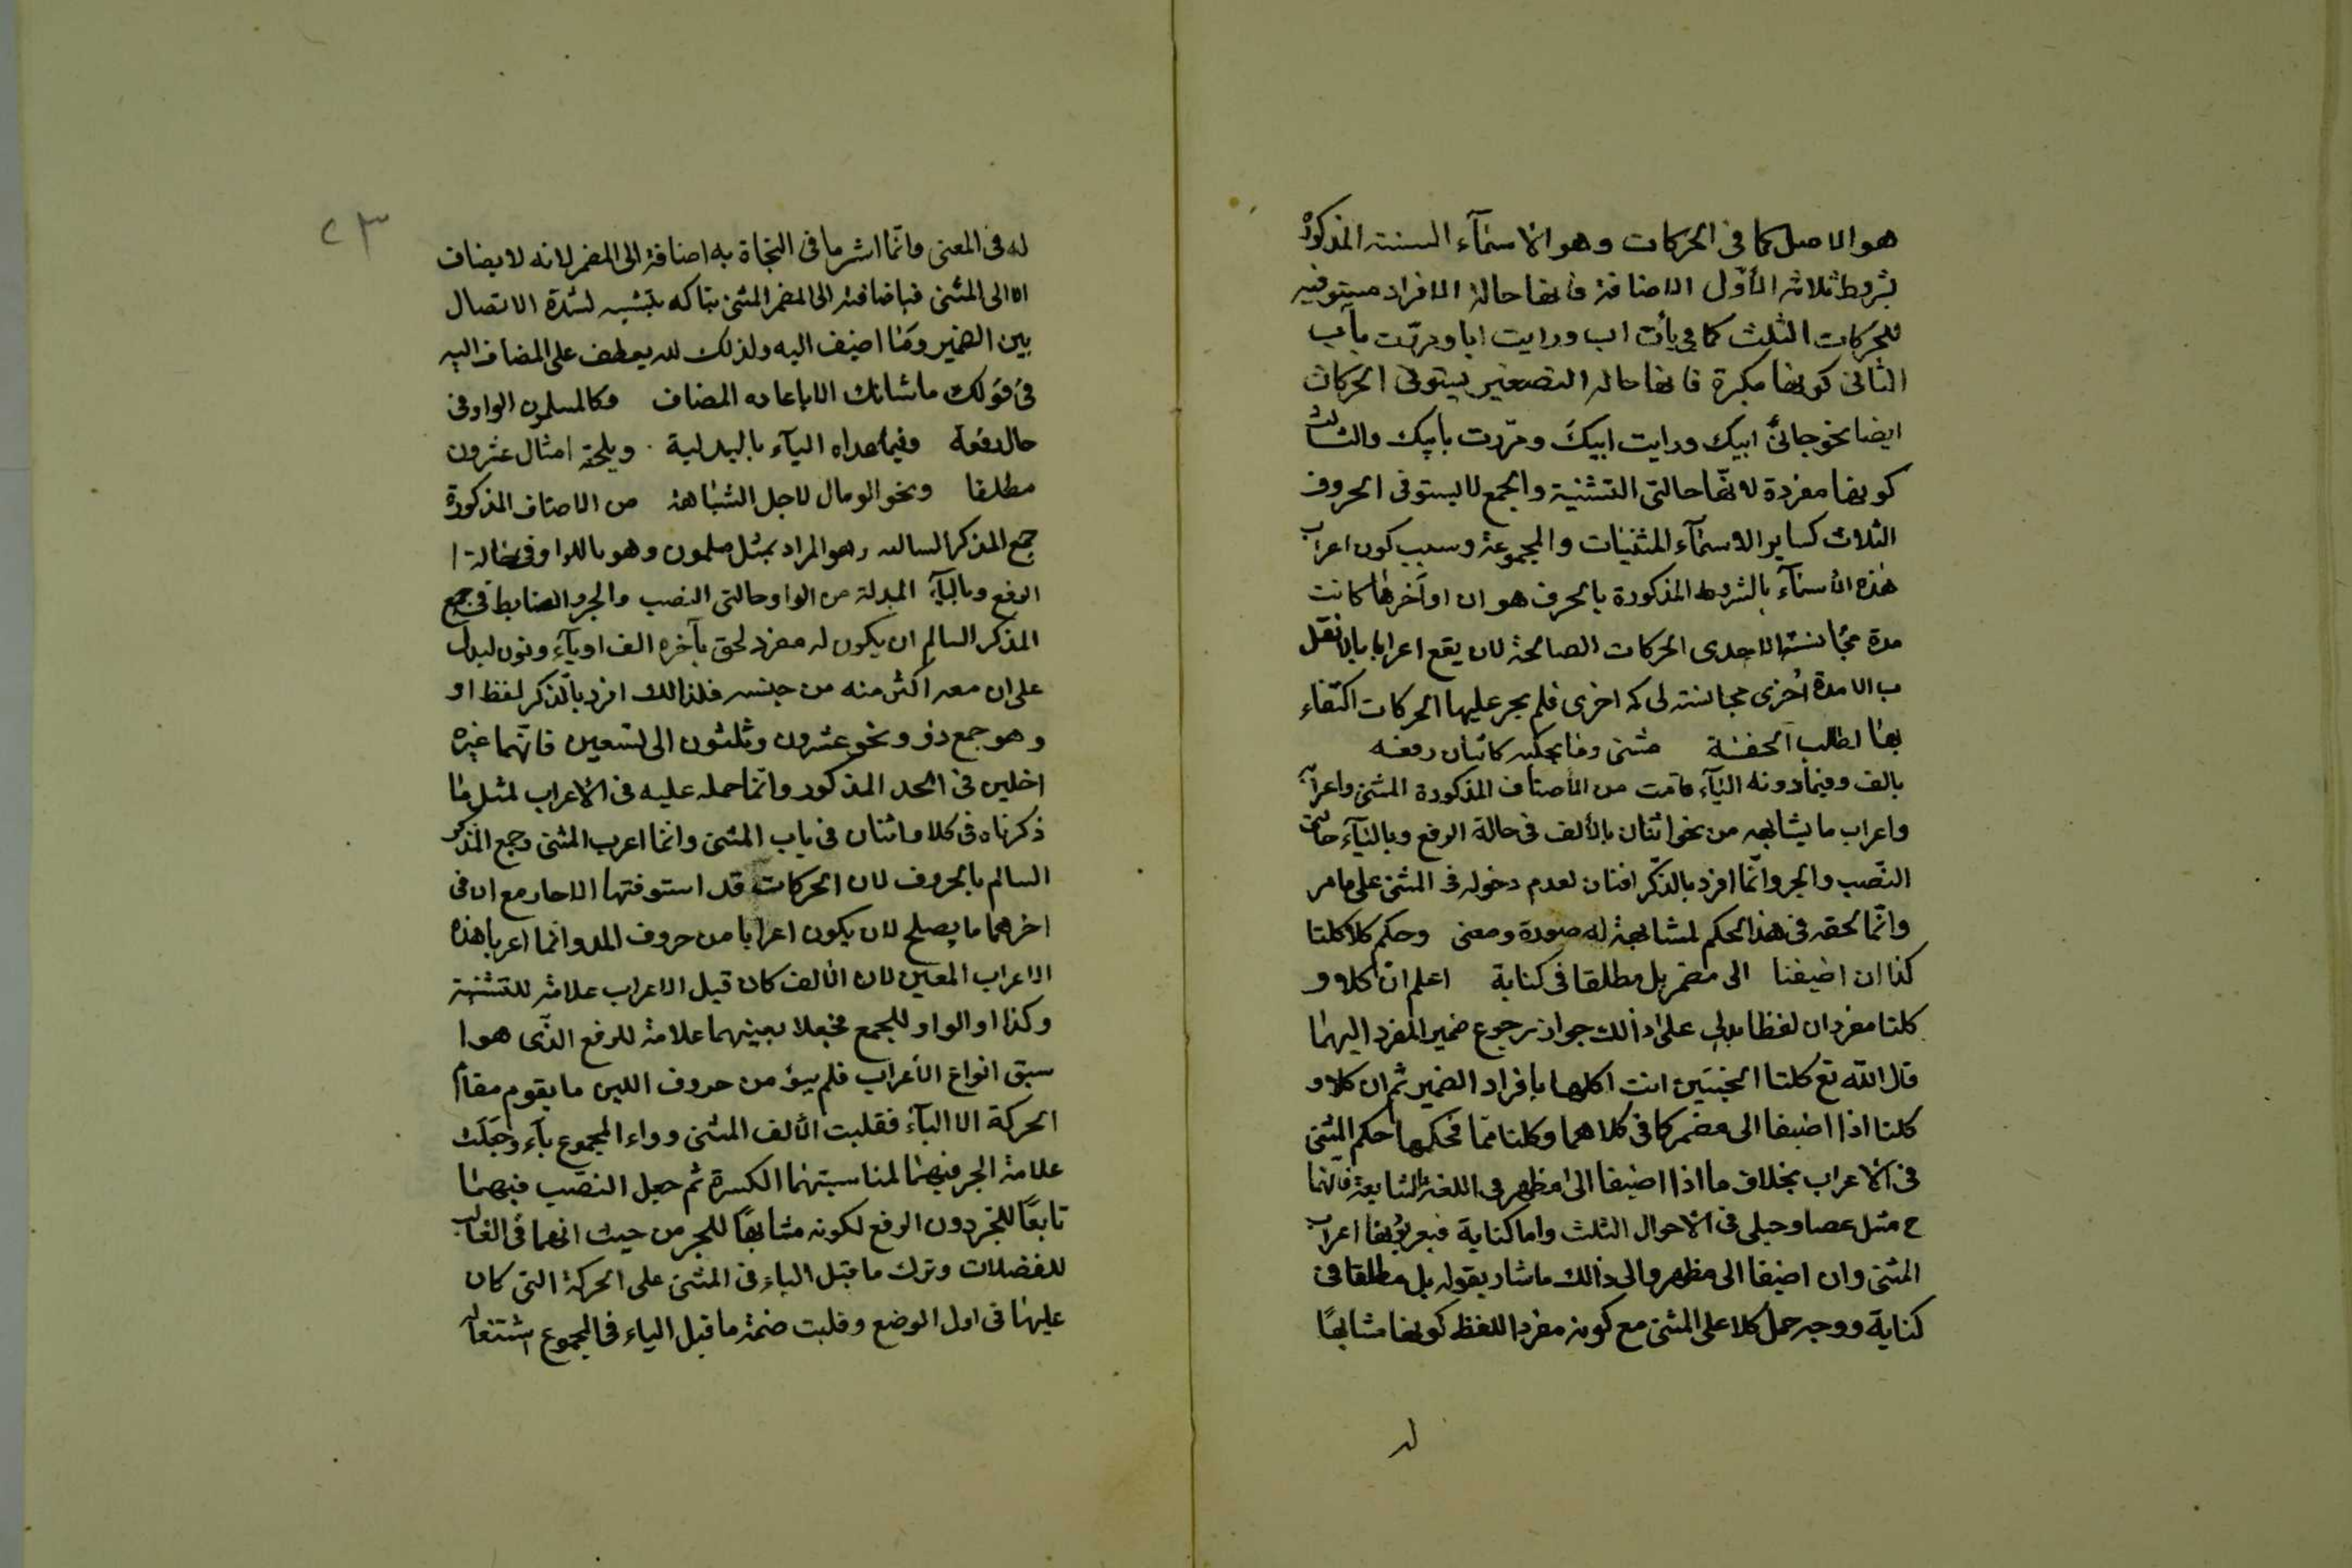 هو الاصل كما فى الحركات وهو الاسمآء الستة المذكورة
بشروط ثلاثة الأول الاضافة فانها حالة الافراد مستوفية
للحركات الثلث كما فى يأت اب ورايت ابا ومررت بأب
الثانى كونها مكبرة فانها حالة التصغير يستوفى الحركات
ايضا نحو جائنى ابيك ورايت ابيك ومررت بابيك والثالث
كونها مفردة لانها حالتى التثنية والجمع لا يستوفى الحروف
الثلاث كساير الاسمآء المثنيات والمجموعة وسبب كون اعراب
هذه الأسمآء بالشروط المذكورة بالحرف هو ان اواخرها كانت
مدة مجانسة لاحدى الحركات الصالحة لان يقع اعرابا بالانقل
ب الا مدة أخرى مجانسة اخرى فلم يجر عليها الحركات اكتفاء
بها لطالب الخفة مثنى وما يحكيه كاثنان رفعه
بالف وفيما دونه اليآء قامت من الأصناف المذكورة المثنى واعرابه
واعراب ما يشابهه من نحو اثنان بالألف فى حالة الرفع وباليآء حالتى
النصب والجر وانما افرد بالذكر اثنان لعدم دخوله فى المثنى على ما مر
وانما لحقه فى هذا الحكم لمشابهة له صورة ومعنى وحكم كلا كلتا
كذا ان اضيفا الى مضمر بل مطلقا فى كناية اعلم ان كلا و
كلتا مفردان لفظا يدل على ذالك جواز رجوع ضمير المفرد اليهما
قال الله تع كلتا الجنتين اتت اكلها بافراد الضمير ثم ان كلا و
كلتا اذا اضيفا الى مضمر كما فى كلاهما وكلتاهما فحكمها حكم المثنى
فى الاعراب بخلاف ما اذا اضيفا الى مظهر فى اللغة الشايعة فانهما
ح مثل عصا وحبلى فى الاحوال الثلث واما كناية فيعربونها اعراب
المثنى وان اضيفا الى مظهر والى ذالك ماشار بقوله بل مطلقا فى
كناية ووجه حمل كلا على المثنى مع كونه مفرد اللفظ كونها مشابها
له
٢٣
له فى المعنى وانما اشر ما فى النحاة به اضافة الى المضمر لانه لا يضاف
الا الى المثنى فباضافته الى المضمر المثنى يتاكد تشبيه لشدة الاتصال
بين الضمير وما اضيف اليه ولذلك لم يعطف على المضاف اليه
فى قولك ماشانك الا باعادة المضاف وكالمسلمون الواو فى
حال رفعه وفيما عداه اليآء بالبدلية ويلحقه امثال عشرون
مطلقا ونحو الومال لاجل الشباهة من الاصناف المذكورة
جمع المذكر السالم وهو المراد بمثل مسلمون وهو بالواو فى حالة ا
الرفع وباليآء المبدلة من الواو حالتى النصب والجر والضابط فى جمع
المذكر السالم ان يكون له مفرد لحق بآخره الف او يآء ونون ليدل
على ان معه اكثر منه من جنسه فلذالك افرد بالذكر لفظ او
وهو جمع ذو ونحو عشرون وثلثون الى تسعين فانهما غيره
اخلين فى الحد المذكور وانما حمله عليه فى الاعراب لمثل ما
ذكرناه فى كلا واثنان فى باب المثنى وانما اعرب المثنى وجمع المذكر
السالم بالحروف لان الحركات قد استوفتها الاحاد مع ان فى
اخرهما ما يصلح لان يكون اعرابا من حروف المد وانما اعربا هذه
الاعراب المعين لان الألف كان قبل الاعراب علامة للتثنية
وكذا او الواو للجمع فجعلا بعينهما علامة للرفع الذى هو ا
سبق انواع الأعراب فلم يبق من حروف اللين ما يقوم مقام
الحركة الا اليآء فقلبت الألف المثنى وواو المجموع يآء وجعلت
علامة الجر فيهما لمناسبتهما الكسرة ثم حمل النصب فيهما
تابعا للجر دون الرفع لكونه مشابها للجر من حيث انهما فى الغالب
للفضلات وترك ما قبل الياء فى المثنى على الحركة التى كان
عليها فى اول الوضع وقلبت ضمة ما قبل الياء فى المجموع اشتغاله